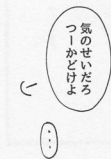 気のせいだろ
つーかどけよ
…